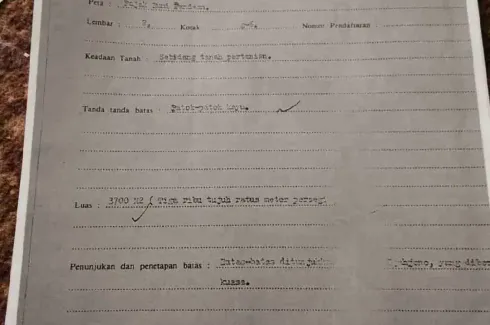 Peta :
Lembar : 8. Kotak Nomor Pendaftaran
Keadaan Tanah : Sebidang tanah pertanian.
Tanda tanda batas : Patok-patok kayu.
Luas : 3700 M2 ( Tiga ribu tujuh ratus meter persegi
Penunjukan dan penetapan batas : Batas-batas ditunjukkan
kuasa.